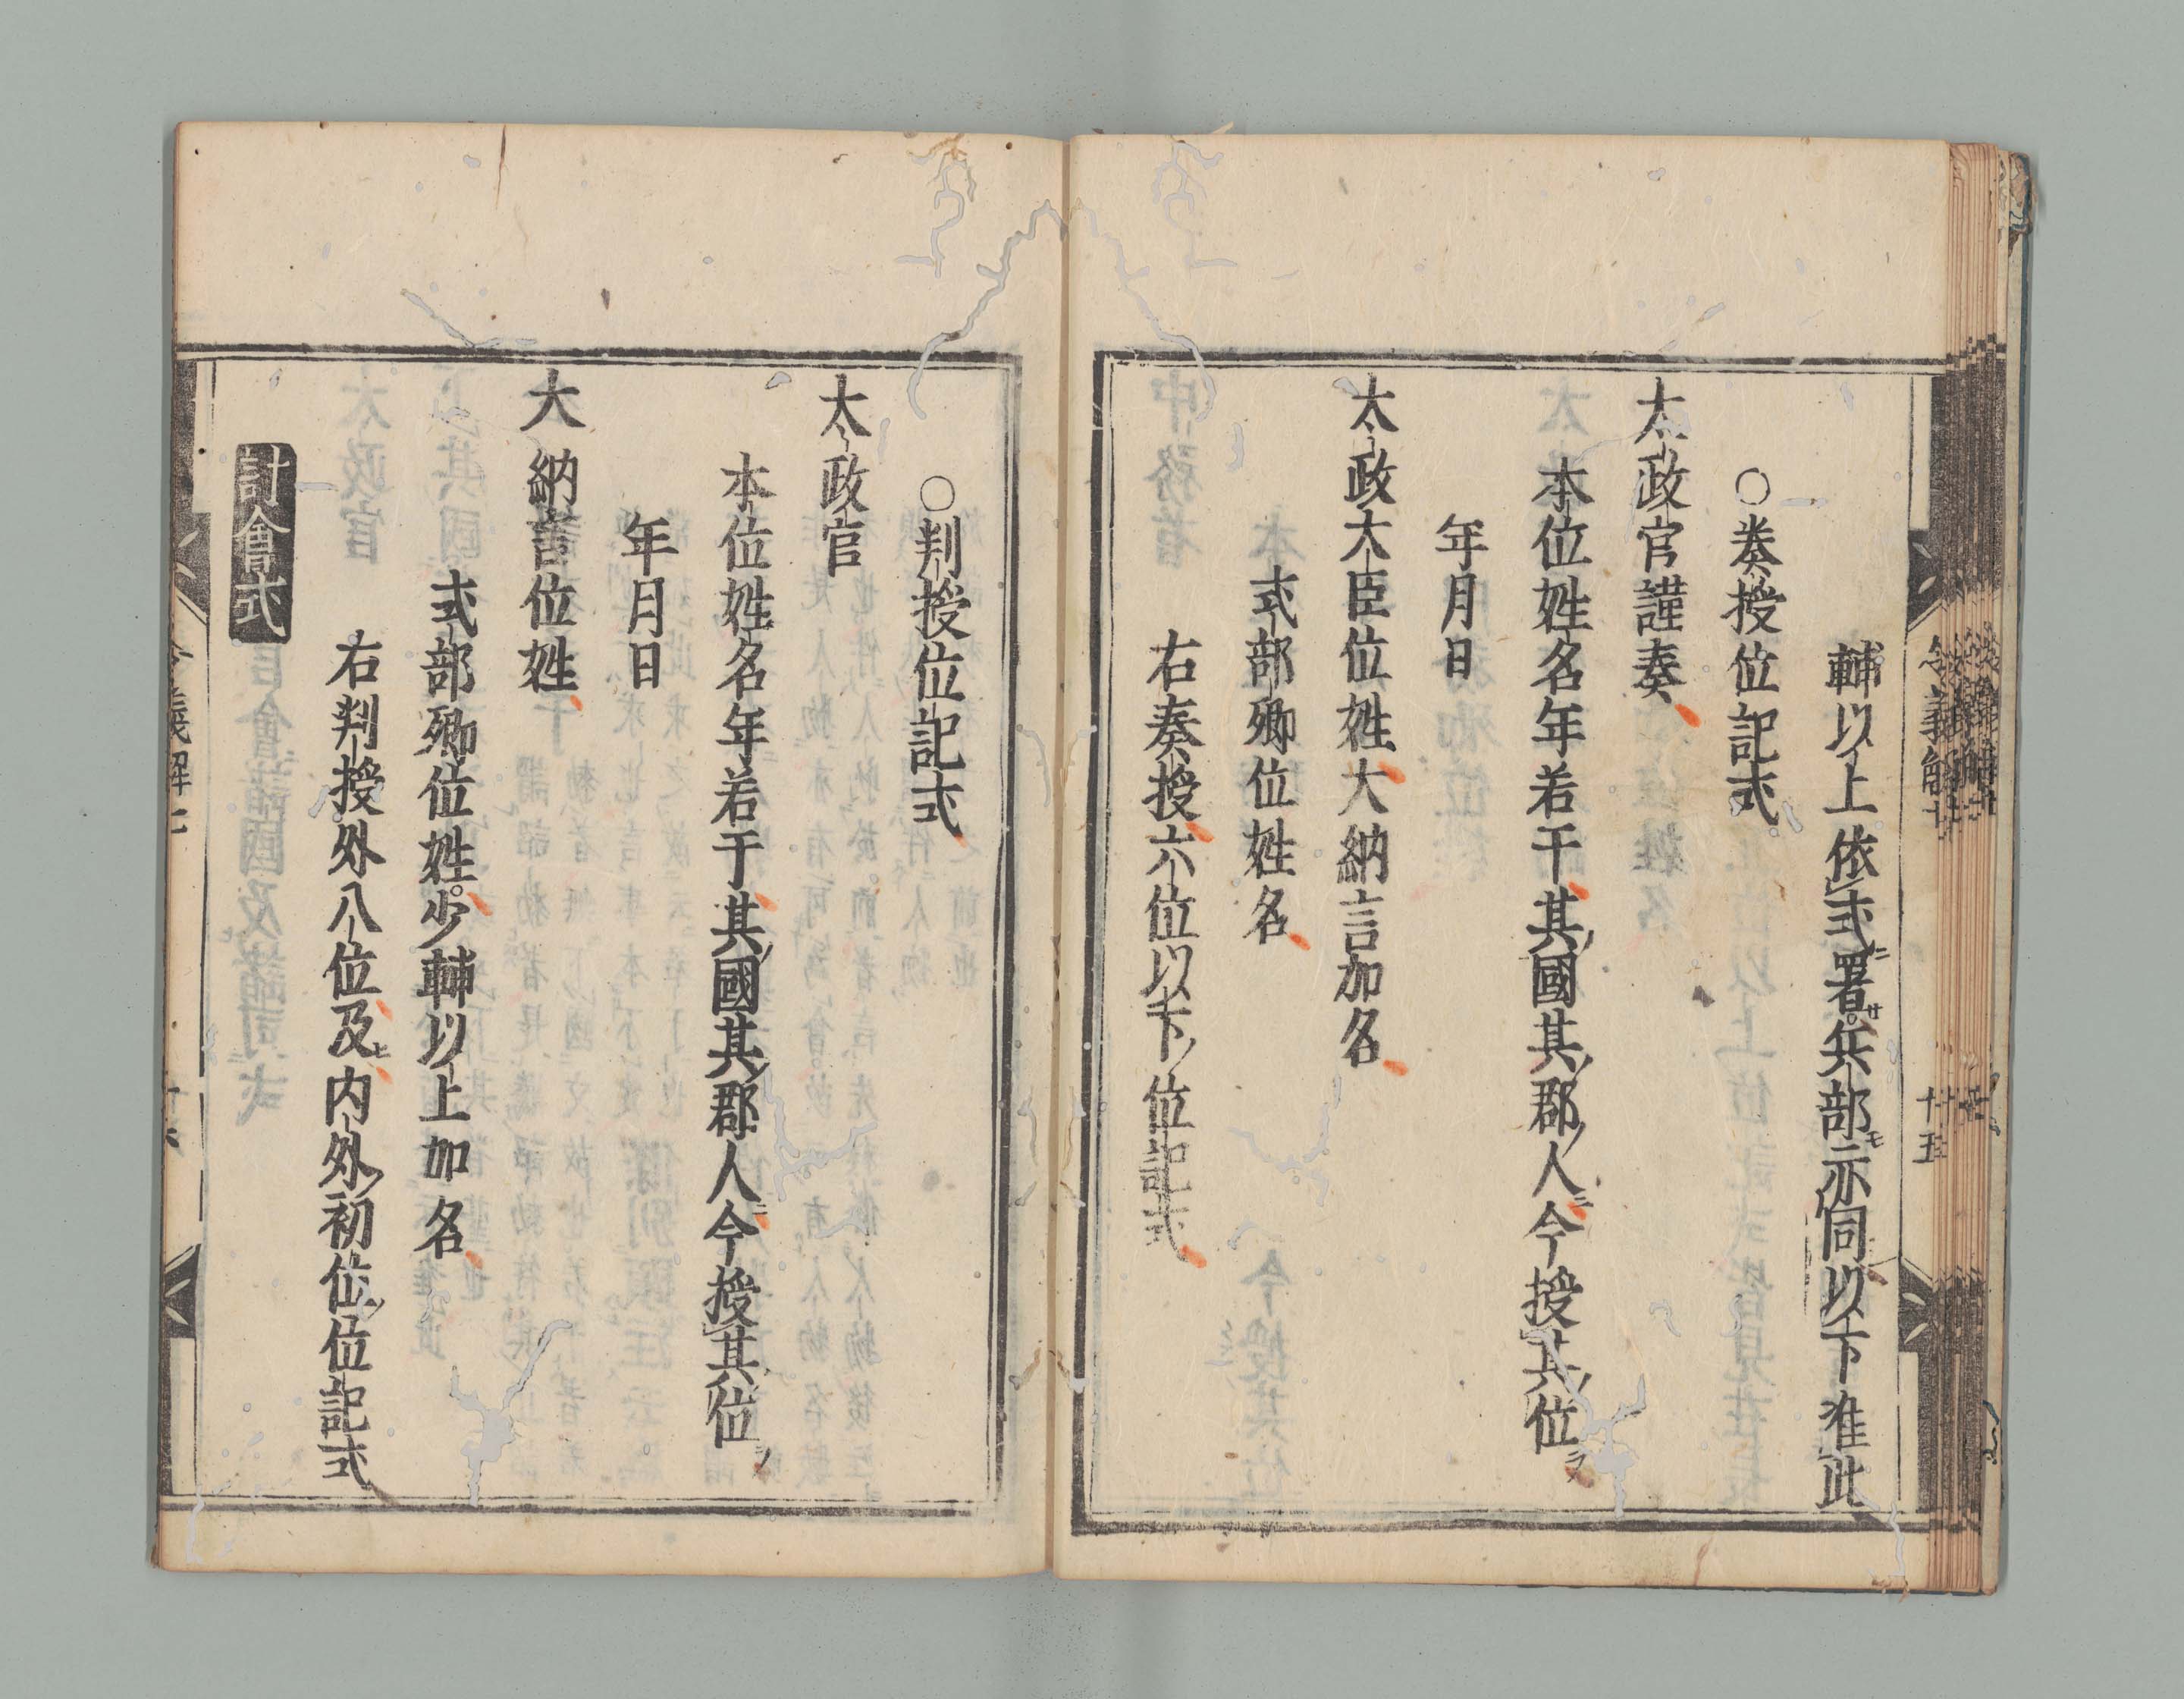 輔以上依式署兵部亦同以下准此
○奏授位記式
太政官謹奏
本位姓名年若干其國其郡人今授其位
年月日
太政大臣位姓大納言加名
式部卿位姓名
右奏授六位以下位記式
令義解七
十五
○判授位記式
太政官
本位姓名年若干其國其郡人今授其位
年月日
大納言位姓
式部卿位姓少輔以上加名
右判授外八位及内外初位位記式
計會式
令義解七